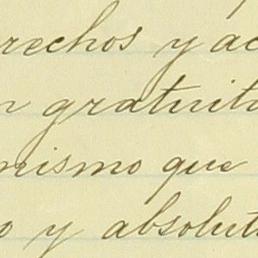 rechos y ac
n gratuita
mismo que
o y absolut